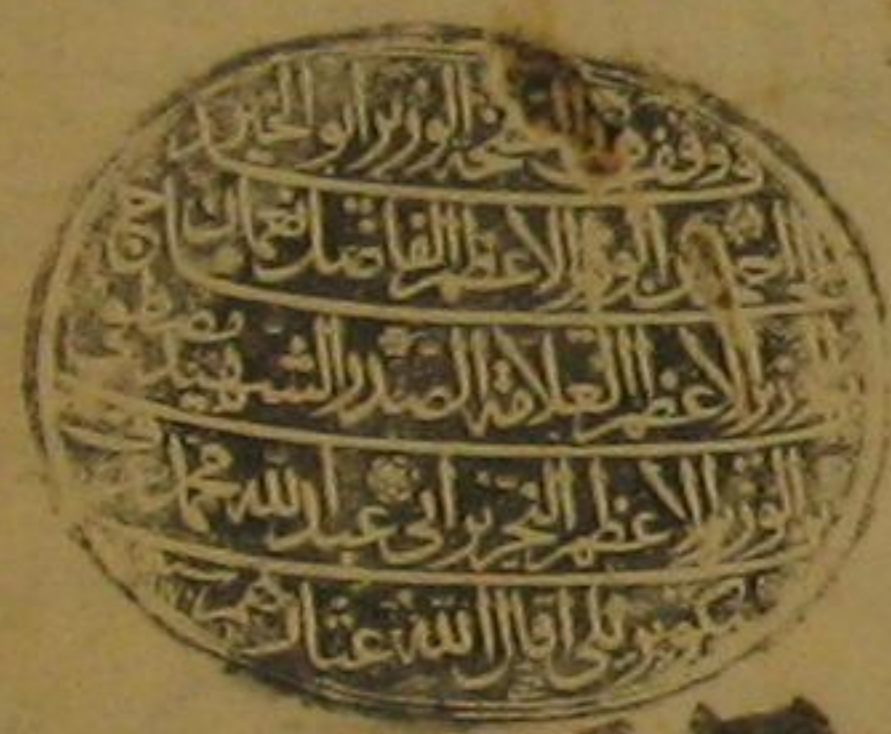 وقف هذه النسخة الوزير ابو الخير احمد
الوزير الاعظم الفاضل نعمان بن
الوزير الاعظم العلامة الصدر الشهيد مصطفى
بن الوزير الاعظم النحرير ابي عبد الله محمد
كوپريلي اقال الله عثارهم